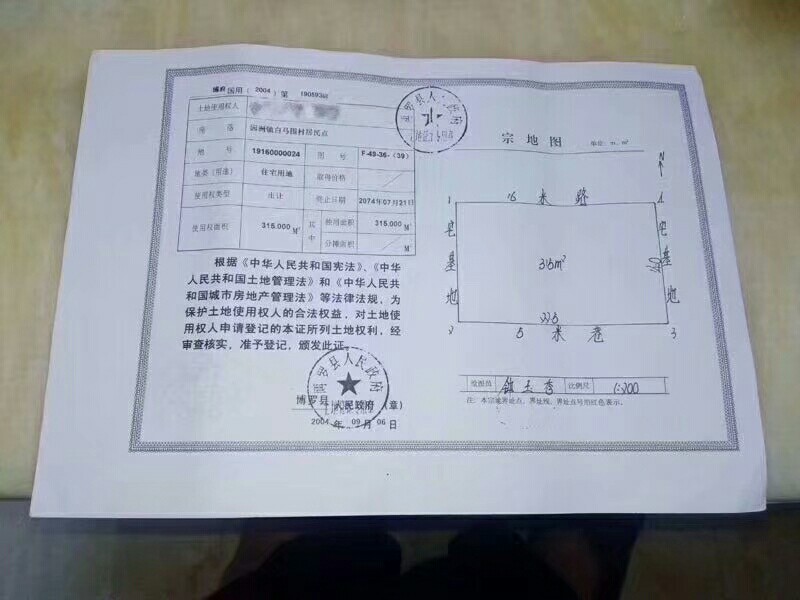 博府国用(2004)第190593号
土地使用权人
座 落 园洲镇白马围村居民点
地 号 19160000024 图 号 F-49-36-(39)
地类(用途) 住宅用地 取得价格
使用权类型 出让 终止日期 2074年07月21日
使用权面积 315.000 M² 其中 独用面积 315.000 M²
分摊面积 M²
根据《中华人民共和国宪法》、《中华
人民共和国土地管理法》和《中华人民共
和国城市房地产管理法》等法律法规,为
保护土地使用权人的合法权益,对土地使
用权人申请登记的本证所列土地权利,经
审查核实,准予登记,颁发此证。
博罗县人民政府
博罗县 人民政府 (章)
2004 年 09 月 06 日
博罗县人民政府
宗地图
单位:m、m²
N
1 16 米 路 4
宅基地
315m²
宅基地
14.0
22.5
2 5 米 巷 3
绘图员 比例尺 1:200
注:本宗地界址点、界址线、界址点号用红色表示。